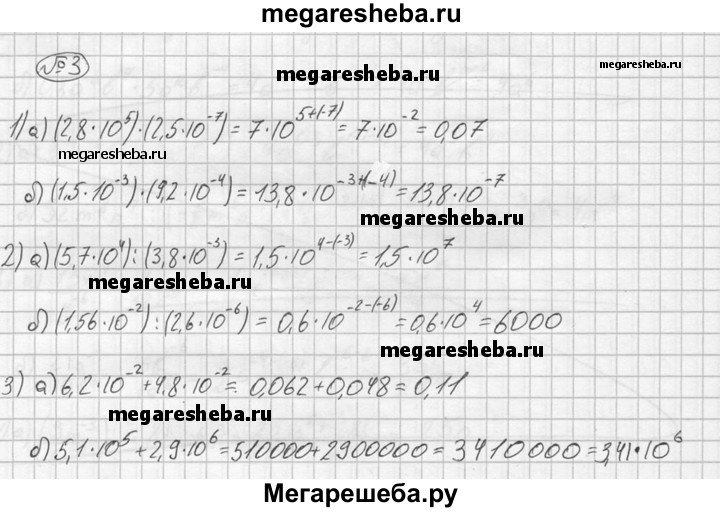 megaresheba.ru
№3
megaresheba.ru
megaresheba.ru
1) а) (2,8·10⁵)·(2,5·10⁻⁷) = 7·10⁵⁺⁽⁻⁷⁾ = 7·10⁻² = 0,07
megaresheba.ru
б) (1,5·10⁻³)·(9,2·10⁻⁴) = 13,8·10⁻³⁺⁽⁻⁴⁾ = 13,8·10⁻⁷
megaresheba.ru
2) а) (5,7·10⁴):(3,8·10⁻³) = 1,5·10⁴⁻⁽⁻³⁾ = 1,5·10⁷
megaresheba.ru
б) (1,56·10⁻²):(2,6·10⁻⁶) = 0,6·10⁻²⁻⁽⁻⁶⁾ = 0,6·10⁴ = 6000
megaresheba.ru
3) а) 6,2·10⁻² + 4,8·10⁻² = 0,062 + 0,048 = 0,11
megaresheba.ru
б) 5,1·10⁵ + 2,9·10⁶ = 510000 + 2900000 = 3410000 = 3,41·10⁶
Мегарешеба.ру